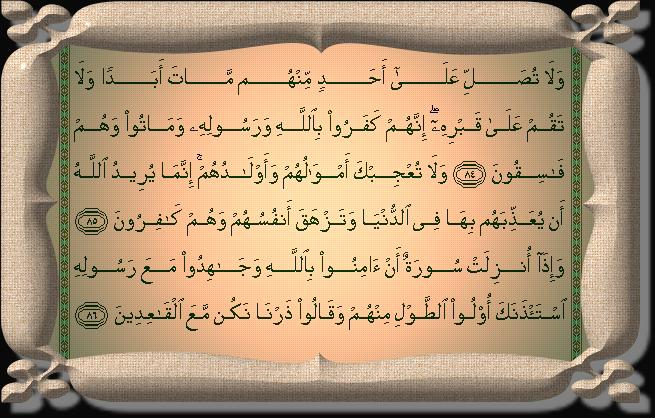 وَلَا تُصَلِّ عَلَىٰٓ أَحَدٍ مِّنْهُم مَّاتَ أَبَدًا وَلَا
تَقُمْ عَلَىٰ قَبْرِهِۦٓ ۖ إِنَّهُمْ كَفَرُوا۟ بِٱللَّهِ وَرَسُولِهِۦ وَمَاتُوا۟ وَهُمْ
فَٰسِقُونَ ٨٤ وَلَا تُعْجِبْكَ أَمْوَٰلُهُمْ وَأَوْلَٰدُهُمْ ۚ إِنَّمَا يُرِيدُ ٱللَّهُ
أَن يُعَذِّبَهُم بِهَا فِى ٱلدُّنْيَا وَتَزْهَقَ أَنفُسُهُمْ وَهُمْ كَٰفِرُونَ ٨٥
وَإِذَآ أُنزِلَتْ سُورَةٌ أَنْ ءَامِنُوا۟ بِٱللَّهِ وَجَٰهِدُوا۟ مَعَ رَسُولِهِ
ٱسْتَـْٔذَنَكَ أُو۟لُوا۟ ٱلطَّوْلِ مِنْهُمْ وَقَالُوا۟ ذَرْنَا نَكُن مَّعَ ٱلْقَٰعِدِينَ ٨٦